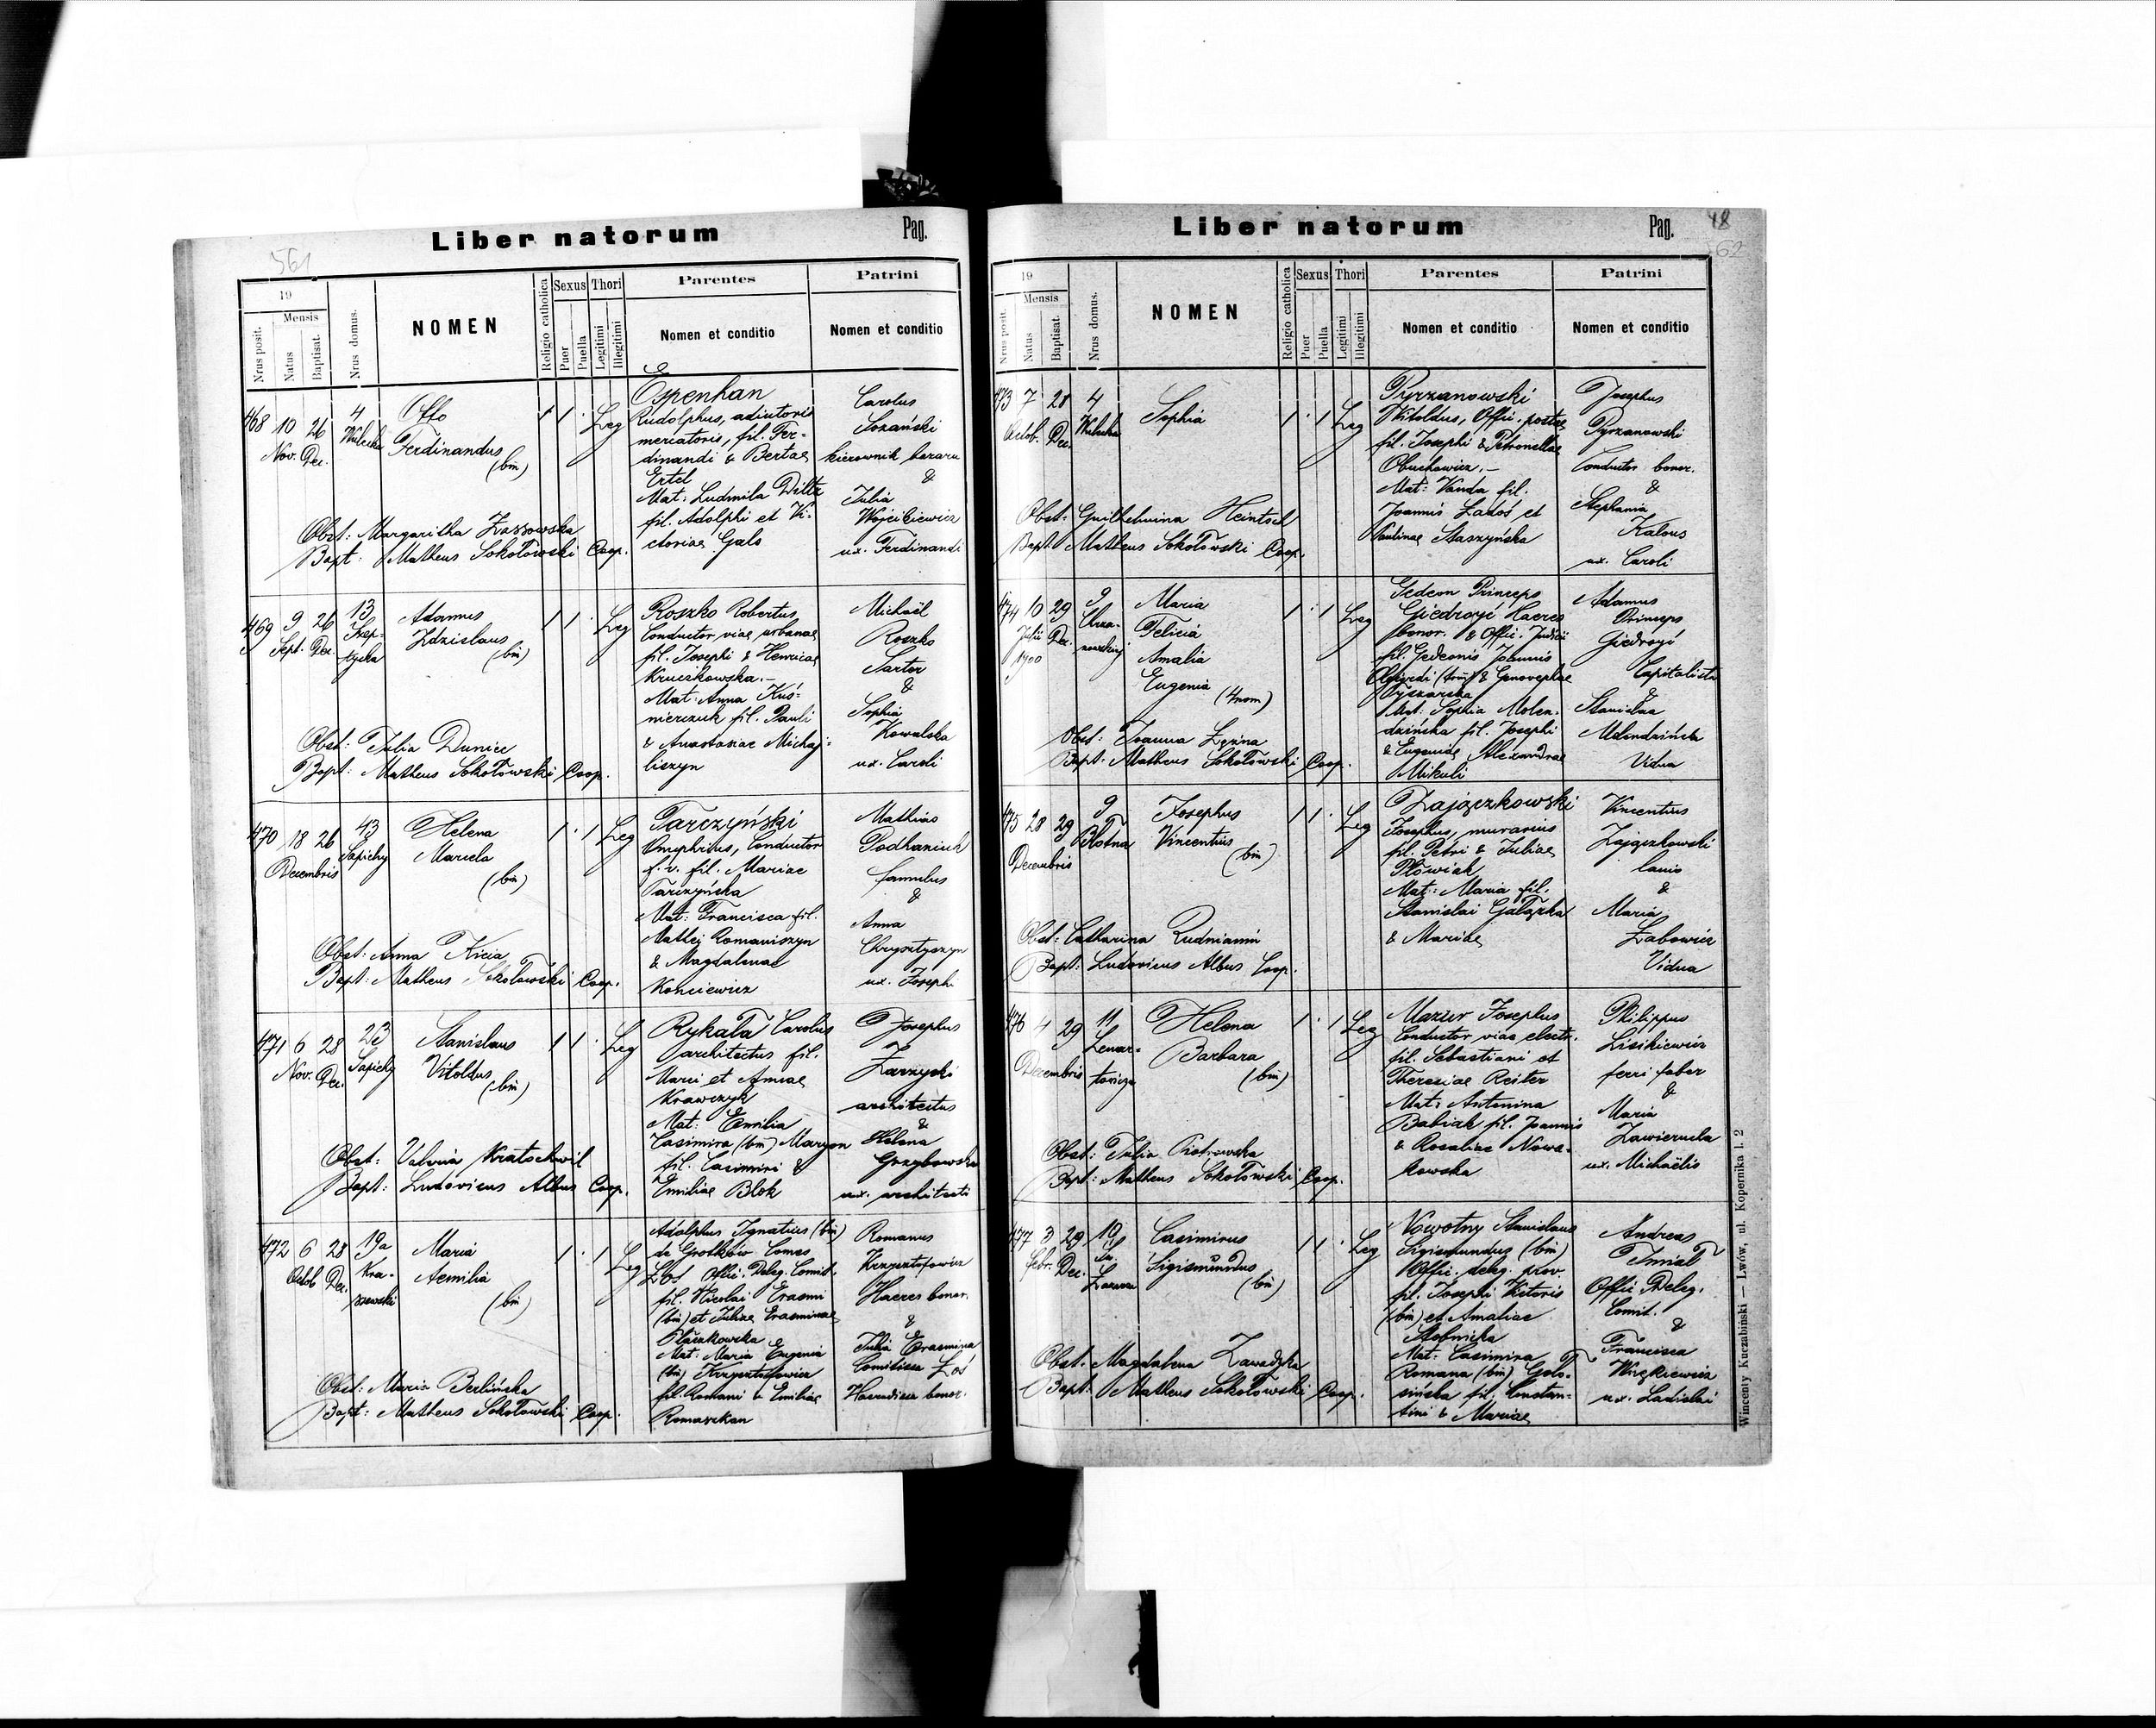 561
Liber natorum Pag.
19
Mensis
Nrus posit.
Natus
Baptisat.
Nrus domus.
NOMEN
Religio catholica
Sexus
Puer
Puella
Thori
Legitimi
Illegitimi
Parentes
Nomen et conditio
Patrini
Nomen et conditio
468 10 26 4 Otto 1 1 . Leg
Nov. Dec. Wulecka Ferdinandus
(bin)
Espenhan
Rudolphus, adiutoris
mercatoris, fil. Fer-
dinandi & Bertae
Ertel
Mat: Ludmila Diltz
fil. Adolphi et Vi-
ctoriae Gals
Carolus
Sozański
kierownik bazaru
&
Julia
Wojcikiewicz
ux. Ferdinandi
Obst: Margaritha
Bapt: Matheus Sokołowski Coop.
469 9 26 13 Adamus 1 1 . Leg
Sept. Dec. Szep-
tycka
Zdzislaus
(bin)
Roszko Robertus
Conductor viae urbanae
fil. Josephi & Henricae
Kruczkowska.-
Mat: Anna Kuś-
nierczuk fil. Pauli
& Anastasiae Michaj-
liszyn
Michaël
Roszko
Sartor
&
Sophia
Kowalska
ux. Caroli
Obst: Julia Duniec
Bapt: Matheus Sokołowski Coop.
470 18 26 43 Helena 1 . 1 Leg
Decembris Sapiehy Mariela
(bin)
Tarczyński
Onuphrius, Conductor
f. v. fil. Mariae
Tarczyńska
Mat: Francisca fil.
Mathej Romaniszyn
& Magdalenae
Konciewicz
Mathias
Podhaniuk
famulus
&
Anna
Chrysztyszyn
ux. Josephi
Obst: Anna Kicia
Bapt: Matheus Sokołowski Coop.
471 6 28 23 Stanislaus 1 1 . Leg
Nov. Dec. Sapiehy Vitoldus
(bin)
Rykała Carolus
architectus fil.
Marci et Annae
Krawczyk
Mat: Emilia
Casimira (bin) Maryon
fil. Casimiri &
Emiliae Blok
Josephus
Zarzycki
architectus
&
Helena
Grzybowska
ux. architecti
Obst: Valeria Kratochwil
Bapt: Ludovicus Albus Coop.
472 6 28 19a Maria 1 . 1 Leg
Octob Dec. Kra-
szewski
Aemilia
(bin)
Adolphus Ignatius (bin)
de Grotków Comes
Łoś Offic. Deleg. Comit.
fil. Nicolai Erasmi
(bin) et Juliae Erasminae
Mat: Maria Eugenia
(bin) Krzysztofowicz
fil. Romani & Emiliae
Romaszkan
Romanus
Krzysztofowicz
Haeres bonor.
&
Julia Erasmina
Comitissa Łoś
bonor.
Obst: Maria Berlińska
Bapt: Matheus Sokołowski Coop.
48
562
Liber natorum Pag.
19
Mensis
Nrus posit.
Natus
Baptisat.
Nrus domus.
NOMEN
Religio catholica
Sexus
Puer
Puella
Thori
Legitimi
Illegitimi
Parentes
Nomen et conditio
Patrini
Nomen et conditio
473 7 28 4 Sophia 1 . 1 Leg
Octob. Dec. Wulecka
Pyrzanowski
Witoldus, Offic. postae
fil. Josephi & Petronellae
Obuchowicz.-
Mat: Vanda fil.
Joannis Ładoś et
Paulinae Staszyńska
Josephus
Pyrzanowski
Conductor bonor.
&
Stephania
Kalous
ux. Caroli
Obst: Guilhelmina Heintsch
Bapt: Matheus Sokołowski Coop.
474 10 29 9 Maria 1 . 1 Leg
Julii Dec.
1900
Chrza-
nowskiej
Felicia
Amalia
Eugenia (4nom)
Gedeon Princeps
Giedroyć Haeres
bonor. & Offic. Judicii
fil. Gedeonis Joannis
Olgierdi (trin) & Genovephae
Mat: Sophia Molen-
dzińska fil. Josephi
& Eugeniae Alexandrae
Mikuli
Adamus
Princeps
Giedroyć
Capitalista
&
Stanislaa
Molendzińska
Vidua
Obst: Joanna
Bapt: Matheus Sokołowski Coop.
475 28 29 9 Josephus 1 1 . Leg
Decembris Błotna Vincentius
(bin)
Zajączkowski
Josephus, murarius
fil. Petri & Juliae
Płowiak
Mat: Maria fil.
Stanislai Gałązka
& Mariae
Vincentius
Zajączkowski
lanio
&
Maria
Żabowicz
Vidua
Obst: Catharina Rudnianin
Bapt: Ludovicus Albus Coop.
476 4 29 11 Helena 1 . 1 Leg
Decembris Lenar-
towicza
Barbara
(bin)
Mazur Josephus
Conductor viae electr.
fil. Sebastiani et
Theresiae Reiter
Mat: Antonina
Babiak fil. Joannis
& Rosaliae Nowa-
kowska
Philippus
Lisikiewicz
ferri faber
&
Maria
Zawierucha
ux. Michaëlis
Obst: Julia Piotrowska
Bapt: Matheus Sokołowski Coop.
477 3 29 10 Casimirus 1 1 . Leg
Febr. Dec. Sigismundus
(bin)
Nowotny Stanislaus
Sigismundus (bin)
Offic. deleg. prov.
fil. Josephi Victoris
(bin) et Amaliae
Słobnicka
Mat: Casimira
Romana (bin) Goło-
sińska fil. Constan-
tini & Mariae
Andreas
Tmiał
Offic. Deleg.
Comit.
&
Francisca
Więckiewicz
ux. Ladislai
Obst: Magdalena Zawadzka
Bapt: Matheus Sokołowski Coop.
Wincenty Kuczabiński — Lwów, ul. Kopernika l. 2